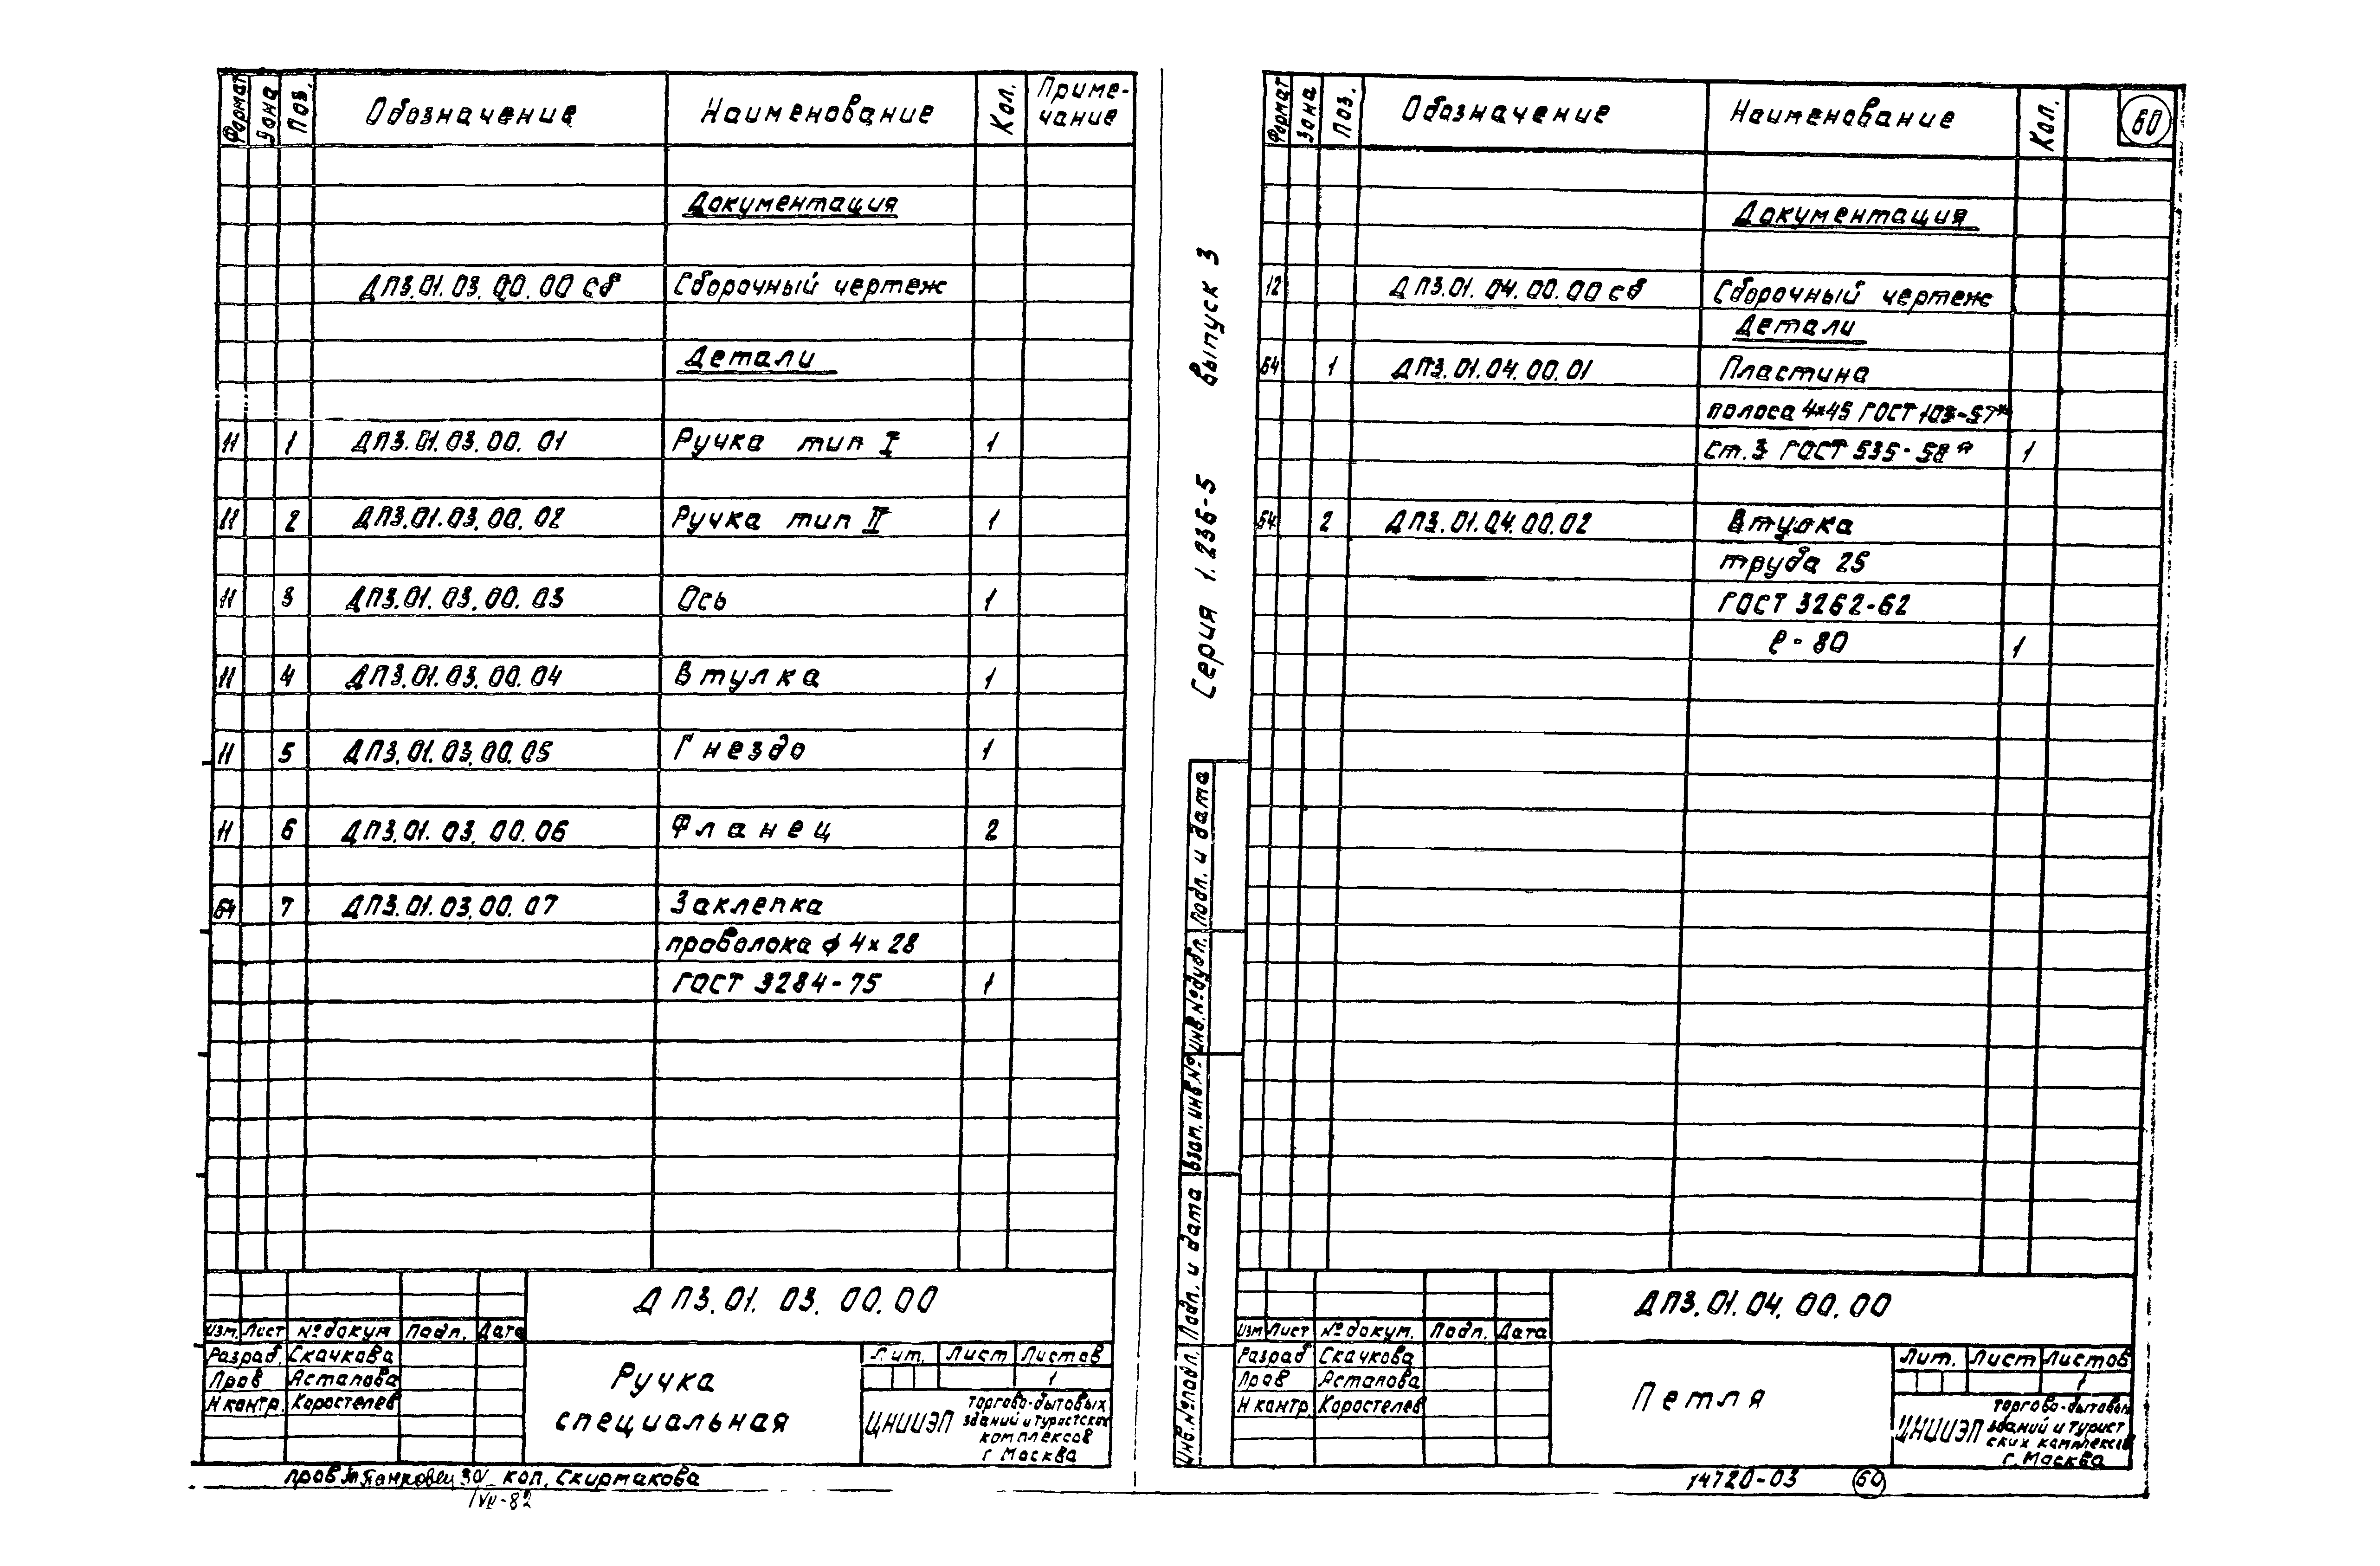 Формат Зона Поз. Обозначение Наименование Кол. Приме-
чание
Документация
ДПЗ.01.03.00.00 сб Сборочный чертеж
Детали
11 1 ДПЗ.01.03.00.01 Ручка тип I 1
11 2 ДПЗ.01.03.00.02 Ручка тип II 1
11 3 ДПЗ.01.03.00.03 Ось 1
11 4 ДПЗ.01.03.00.04 Втулка 1
11 5 ДПЗ.01.03.00.05 Гнездо 1
11 6 ДПЗ.01.03.00.06 Фланец 2
БЧ 7 ДПЗ.01.03.00.07 Заклепка
проволока ϕ 4×28
ГОСТ 3284-75 1
ДПЗ.01.03.00.00
Изм. Лист № докум Подп. Дата
Разраб. Скачкова
Пров Астапова
Н контр. Коростелев
Ручка
специальная
Лит. Лист Листов
1
ЦНИИЭП торгово-бытовых
зданий и туристских
комплексов
г Москва
пров кол. Скирмакова
VII-82
Серия 1.236-5 Выпуск 3
Формат Зона Поз. Обозначение Наименование Кол. 60
Документация
12 ДПЗ.01.04.00.00 сб Сборочный чертеж
Детали
БЧ 1 ДПЗ.01.04.00.01 Пластина
полоса 4×45 ГОСТ 103-57*
Ст.3 ГОСТ 535-58* 1
БЧ 2 ДПЗ.01.04.00.02 Втулка
труба 25
ГОСТ 3262-62
ℓ-80 1
Инв.№ подл. Подп. и дата Взам. инв.№ Инв.№ дубл. Подп. и дата
ДПЗ.01.04.00.00
Изм Лист № докум. Подп. Дата
Разраб Скачкова
Пров Астапова
Н контр. Коростелев
Петля
Лит. Лист Листов
1
ЦНИИЭП торгово-бытовых
зданий и турист
ских комплексов
г. Москва
14720-03 60